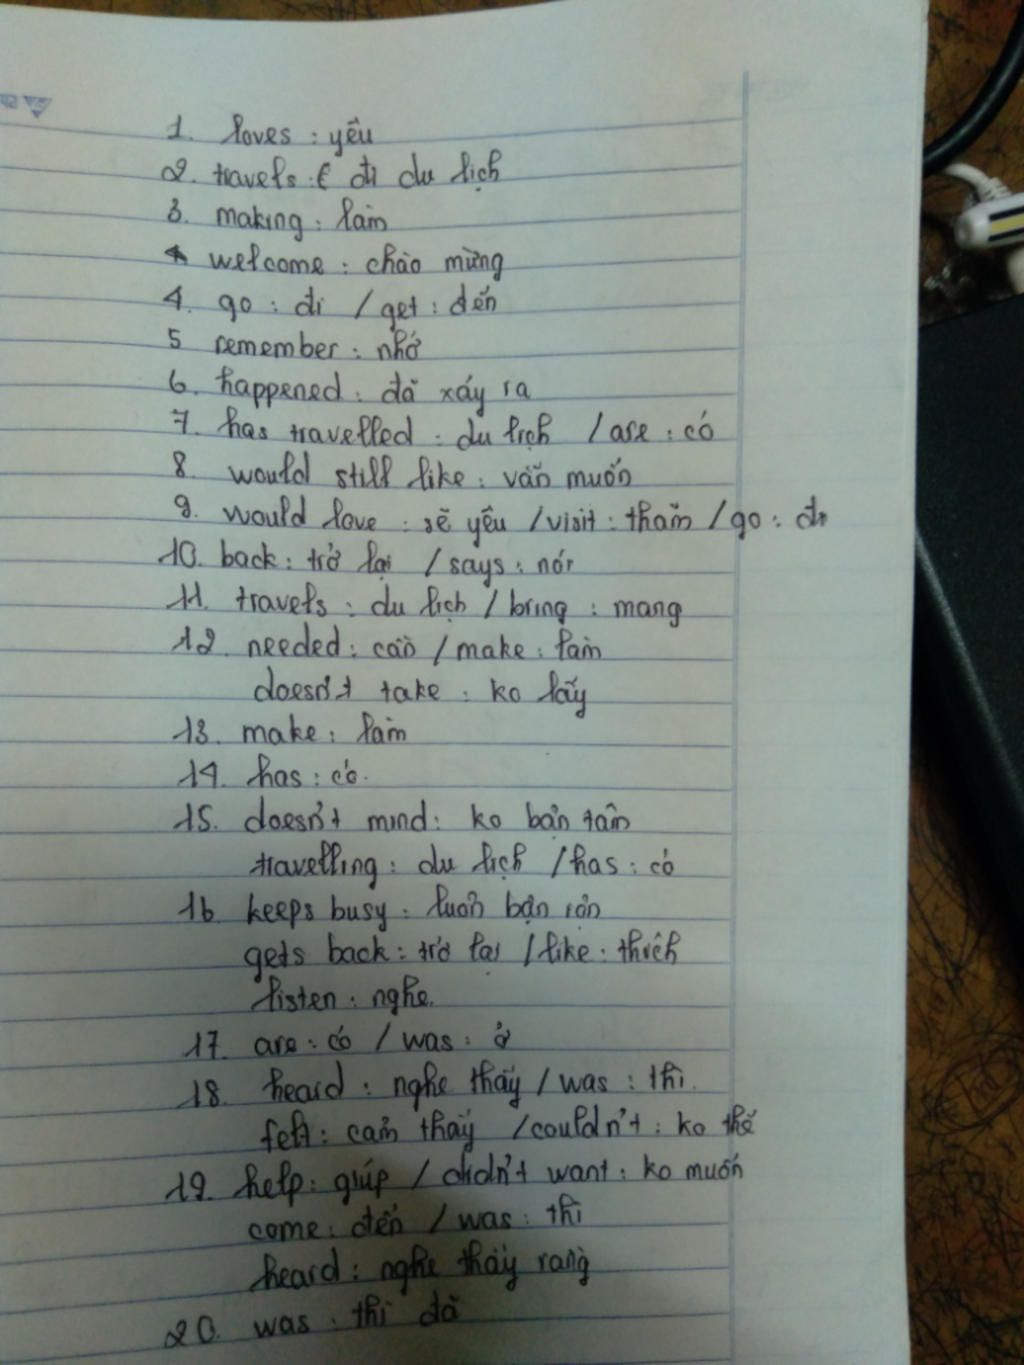 1. loves : yêu
2. travels : đi du lịch
3. making : làm
welcome : chào mừng
4. go : đi / get : đến
5 remember : nhớ
6. happened : đã xảy ra
7. has travelled : du lịch / are : có
8. would still like : vẫn muốn
9. would love : sẽ yêu / visit : thăm / go : đi
10. back : trở lại / says : nói
11. travels : du lịch / bring : mang
12. needed : cần / make : làm
doesn't take : ko lấy
13. make : làm
14. has : có.
15. doesn't mind : ko bận tâm
travelling : du lịch / has : có
16 keeps busy : luôn bận rộn
gets back : trở lại / like : thích
listen : nghe.
17. are : có / was : ở
18. heard : nghe thấy / was : thì.
felt : cảm thấy / couldn't : ko thể
19. help : giúp / didn't want : ko muốn
come : đến / was : thì
heard : nghe thấy rằng
20. was : thì đã